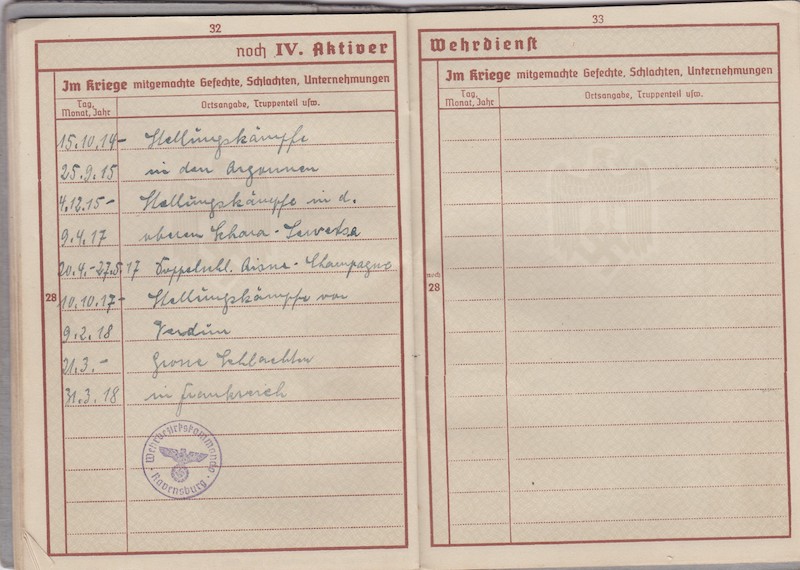 32
noch IV. Aktiver
Im Kriege mitgemachte Gefechte, Schlachten, Unternehmungen
Tag, Monat, Jahr
Ortsangabe, Truppenteil usw.
15.10.14- Stellungskämpfe
25.9.15 in den Argonnen
4.12.15- Stellungskämpfe in d.
9.4.17 oberen Schara-Serwetsch
20.4.-27.5.17 Doppelschl. Aisne-Champagne
28
10.10.17- Stellungskämpfe vor
9.2.18 Verdun
21.3.- Grosse Schlachten
31.3.18 in Frankreich
Wehrbezirkskommando
Ravensburg
33
Wehrdienst
Im Kriege mitgemachte Gefechte, Schlachten, Unternehmungen
Tag, Monat, Jahr
Ortsangabe, Truppenteil usw.
noch
28